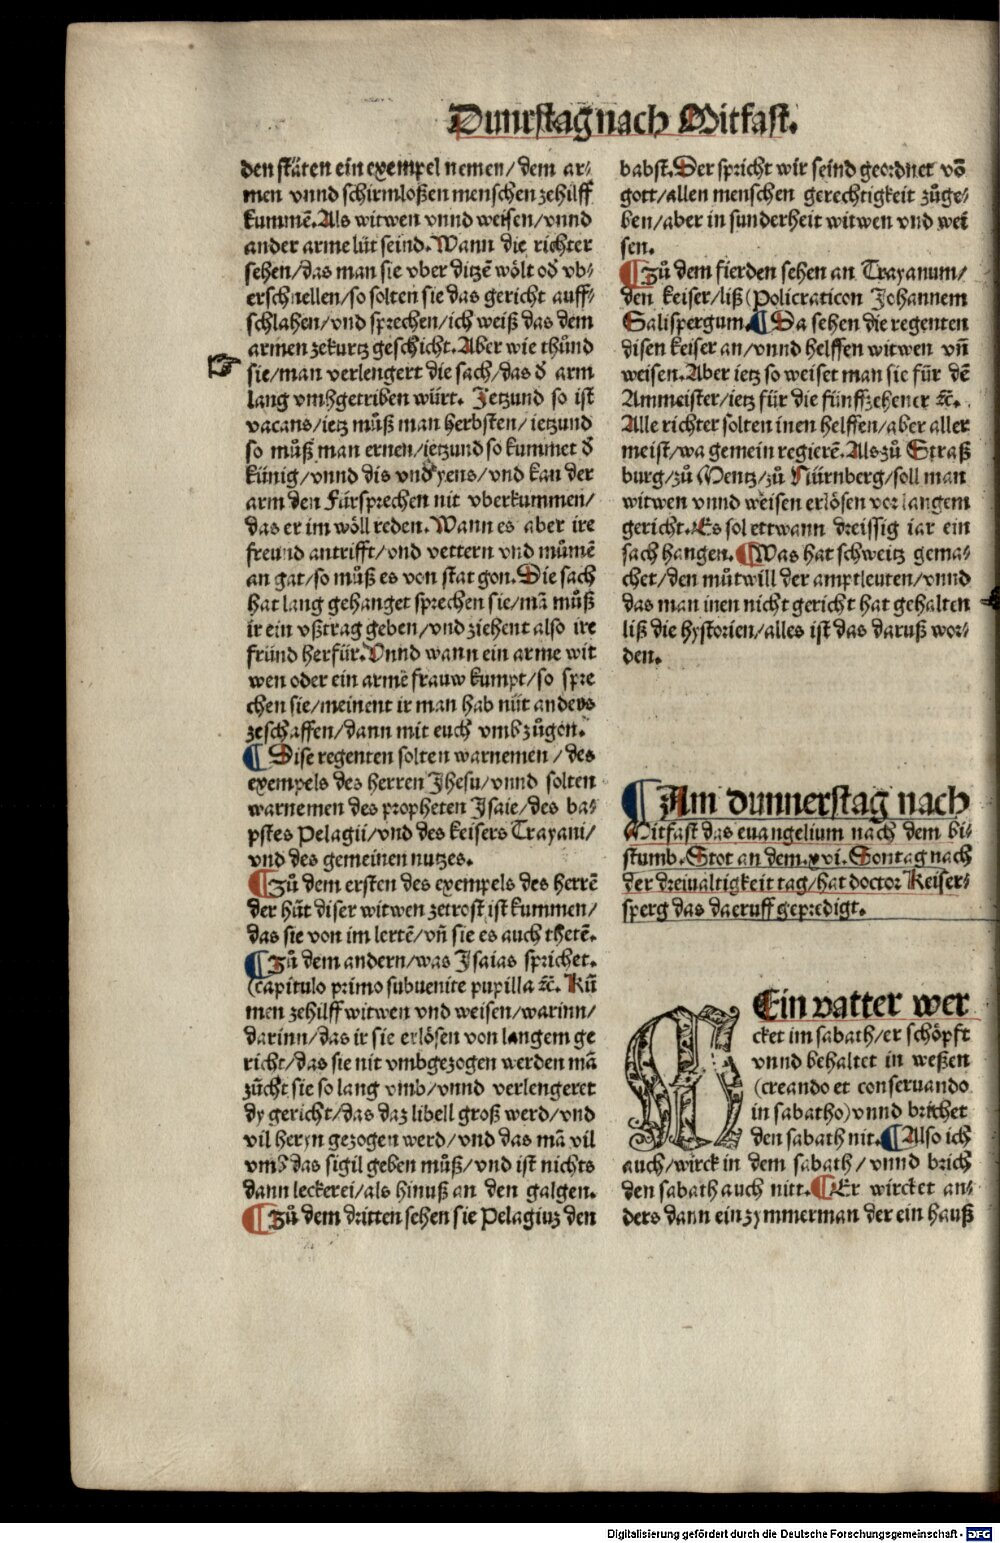 Dunrstag nach Mitfast.
den stäten ein exempel nemen/dem ar⸗
men vnnd schirmloßen menschen zehilff
kummē. Als witwen vnnd weisen/vnnd
ander arme lüt seind. Wann die richter
sehen/das man sie vber ditzē wölt od̄ vb⸗
erschnellen/so solten sie das gericht auff⸗
schlahen/vnd sprechen/ich weiß das dem
armen zekurtz geschicht. Aber wie thůnd
sie/man verlengert die sach/das d̄ arm
lang vmhgetriben würt. Jetzund so ist
vacans/ietz můß man herbsten/ietzund
so můß man ernen/ietzund so kummet d̄
künig/vnnd dis vnd yens/vnd kan der
arm den Fürsprechen nit vberkummen/
das er im wöll reden. Wann es aber ire
freund antrifft/vnd vettern vnd můmē
an gat/so můß es von stat gon. Die sach
hat lang gehanget sprechen sie/mā můß
ir ein vßtrag geben/vnd ziehent also ire
fründ herfür. Vnnd wann ein arme wit
wen oder ein armē frauw kumpt/so spre
chen sie/meinent ir man hab nüt anders
zeschaffen/dann mit euch vmbzůgon.
¶ Dise regenten solten warnemen/des
exempels des herren Jhesu/vnnd solten
warnemen des propheten Jsaie/des ba⸗
pstes Pelagii/vnd des keisers Trayani/
vnd des gemeinen nutzes.
¶ Zů dem ersten des exempels des herrē
der hüt diser witwen zetrost ist kummen/
das sie von im lertē/vn̄ sie es auch thetē.
¶ Zů dem andern/was Jsaias sprichet.
(capitulo primo subuenite pupilla ⁊c̄. Kū
men zehilff witwen vnd weisen/warinn/
darinn/das ir sie erlösen von langem ge
richt/das sie nit vmbgezogen werden mā
zücht sie so lang vmb/vnnd verlengeret
dy gericht/das daz libell groß werd/vnd
vil heryn gezogen werd/vnd das mā vil
vmb das sigil geben můß/vnd ist nichts
dann leckerei/als hinuß an den galgen.
¶ Zů dem dritten sehen sie Pelagiuz den
babst. Der spricht wir seind geordnet vō
gott/allen menschen gerechtigkeit zůge⸗
ben/aber in sunderheit witwen vnd wei
sen.
¶ Zů dem fierden sehen an Trayanum/
den keiser/liß (Policraticon Johannem
Salispergum. ¶ Da sehen die regenten
disen keiser an/vnnd helffen witwen vn̄
weisen. Aber ietz so weiset man sie für dē
Ammeister/ietz für die fünffzehener ⁊c̄.
Alle richter solten inen helffen/aber aller
meist/wa gemein regierē. Als zů Straß
burg/zů Mentz/zů Nürnberg/soll man
witwen vnnd weisen erlösen vor langem
gericht. Es sol ettwann dreissig iar ein
sach hangen. ¶ Was hat schweitz gema⸗
chet/den můtwill der amptleuten/vnnd
das man inen nicht gericht hat gehalten
liß die hystorien/alles ist das daruß wor⸗
den.
¶ Am dunnerstag nach
Mitfast das euangelium nach dem bi⸗
stumb. Stot an dem .xvi. Sontag nach
der dreiualtigkeit tag/hat doctor Keiser⸗
sperg das daeruff gepredigt.
MEin vatter wer
cket im sabath/er schöpft
vnnd behaltet in weßen
(creando et conseruando
in sabatho) vnnd brichet
den sabath nit. ¶ Also ich
auch/wirck in dem sabath/vnnd brich
den sabath auch nitt. ¶ Er wircket an⸗
ders dann ein zymmerman der ein hauß
Digitalisierung gefördert durch die Deutsche Forschungsgemeinschaft - DFG